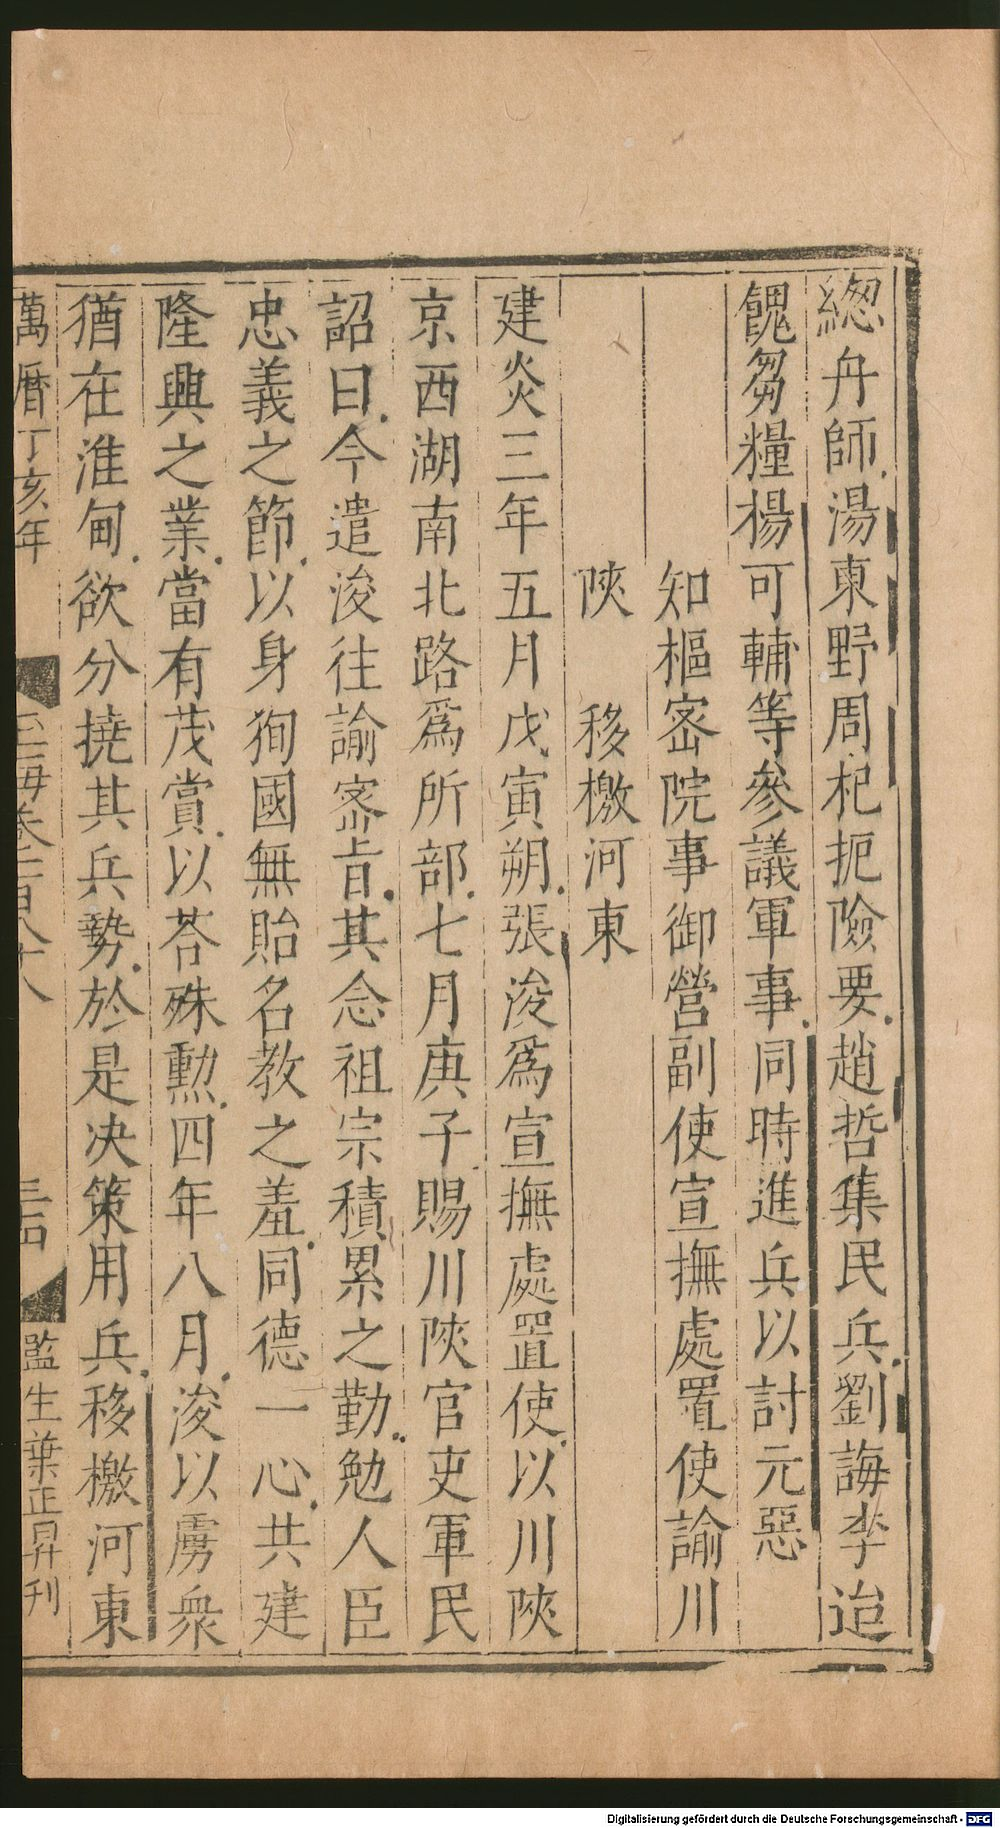 緫舟師湯東野周杞扼險要趙哲集民兵劉誨李迨
餽芻糧楊可輔等參議軍事同時進兵以討元惡
知樞密院事御營副使宣撫處置使諭川
陝　移檄河東
建炎三年五月戊寅朔張浚爲宣撫處置使以川陝
京西湖南北路爲所部七月庚子賜川陝官吏軍民
詔曰今遣浚往諭宻旨其念祖宗積累之勤勉人臣
忠義之節以身徇國無貽名教之羞同德一心共建
隆興之業當有茂賞以荅殊勲四年八月浚以虜衆
猶在淮甸欲分撓其兵勢於是决策用兵移檄河東
萬曆丁亥年
玉海卷一百八十八
三四
監生葉正昇刊
Digitalisierung gefördert durch die Deutsche Forschungsgemeinschaft - DFG